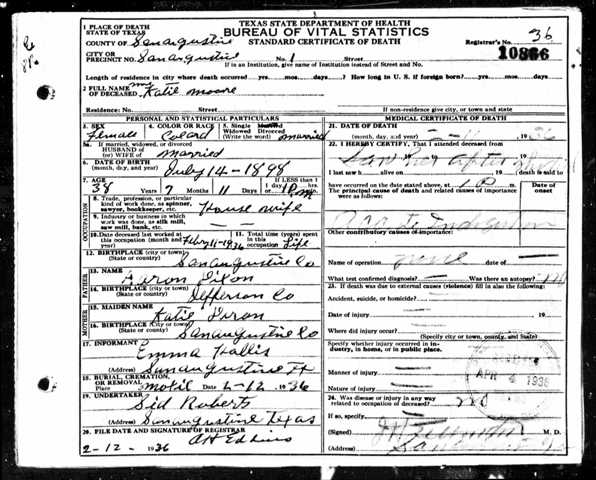 TEXAS STATE DEPARTMENT OF HEALTH
BUREAU OF VITAL STATISTICS
STANDARD CERTIFICATE OF DEATH
1 PLACE OF DEATH
STATE OF TEXAS
COUNTY OF San augustine
Registrar's No. 36
10866
CITY OR
PRECINCT NO. San augustine No. 1 Street
If in an Institution, give name of Institution instead of Street and No.
Length of residence in city where death occurred yrs. mos. days. How long in U. S. if foreign born? yrs. mos. days
2 FULL NAME OF DECEASED Mrs Katie Moore
Residence: No. Street If non-residence give city, or town and state
PERSONAL AND STATISTICAL PARTICULARS
3. SEX Female
4. COLOR OR RACE Colard
5. Single Married Widowed Divorced (Write the word) married
5a. If married, widowed, or divorced
HUSBAND OF
(or) WIFE OF Married
6. DATE OF BIRTH
(month, day, and year) July 14 - 1898
7. AGE 38 Years 7 Months 11 Days If LESS than 1 day
8. Trade, profession, or particular
kind of work done, as spinner,
sawyer, bookkeeper, etc. House wife
9. Industry or business in which
work was done, as silk mill,
saw mill, bank, etc.
10. Date deceased last worked at
this occupation (month and year) Feb 11-1936
11. Total time (years) spent in this occupation Life
OCCUPATION
12. BIRTHPLACE (city or town)
(State or county) San augustine Co
FATHER
13. NAME Aaron
14. BIRTHPLACE (city or town)
(State or county) Jefferson Co
MOTHER
15. MAIDEN NAME Katie
16. BIRTHPLACE (city or town)
(State or county) San augustine Co
17. INFORMANT Emma Hallis
(Address) San augustine
18. BURIAL, CREMATION,
OR REMOVAL
Place Date 2-12 1936
19. UNDERTAKER Sid Roberts
(Address) San augustine Texas
20. FILE DATE AND SIGNATURE OF REGISTRAR
2-12-1936
MEDICAL CERTIFICATE OF DEATH
21. DATE OF DEATH
(month, day, and year) 2-11 1936
22. I HEREBY CERTIFY, That I attended deceased from
Saw her after
I last saw h alive on 19 death is said to
have occurred on the date stated above, at 1 P m.
The principal cause of death and related causes of importance were as follows: Date of onset
Acute Indigestion
Other contributory causes of importance:
Name of operation none date of
What test confirmed diagnosis? Was there an autopsy? no
23. If death was due to external causes (violence) fill in also the following:
Accident, suicide, or homicide?
Date of injury 19
Where did injury occur?
(Specify city or town, county, and State)
Specify whether injury occurred in industry, in home, or in public place.
Manner of injury
Nature of injury
APR 4 1936
24. Was disease or injury in any way
related to occupation of deceased? no
If so, specify
(Signed) M. D.
(Address)